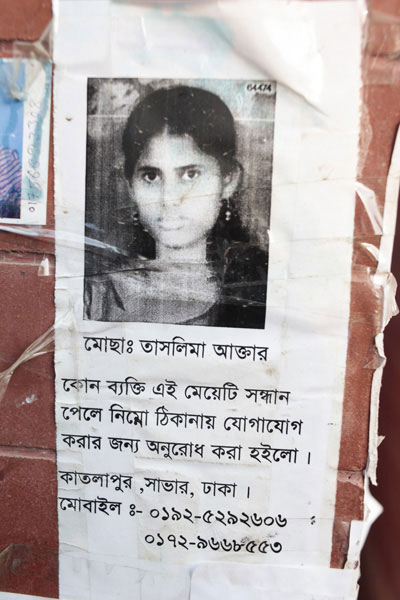 64474
মোছাঃ তাসলিমা আক্তার
কোন ব্যক্তি এই মেয়েটি সন্ধান
পেলে নিম্নো ঠিকানায় যোগাযোগ
করার জন্য অনুরোধ করা হইলো ।
কাতলাপুর ,সাভার, ঢাকা ।
মোবাইল ঃ- ০১৯২-৫২৯২৬০৬
০১৭২-৯৬৬৮৫৫৩